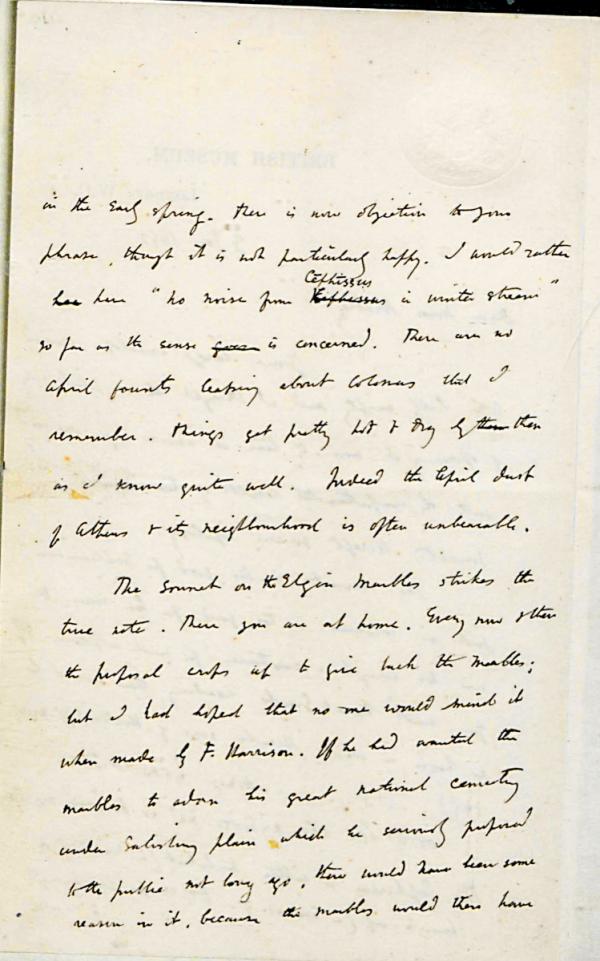 in the early spring. There is now objection to your
phrase, though it is not particularly happy. I would rather
have here "no noise from Cephissus in winter stream"
so far as the sense goes is concerned. There are no
April founts leaping about Colonus that I
remember. Things get pretty hot & dry by then then
as I know quite well. Indeed the April dust
of Athens & its neighbourhood is often unbearable.
The Sonnet on the Elgin Marbles strikes the
true note. There you are at home. Every now & then
the proposal crops up to give back the Marbles;
but I had hoped that no one would mind it
when made by F. Harrison. If he had wanted the
marbles to adorn his great national cemetery
under Salisbury plain which he seriously proposed
to the public not long ago, there would have been some
reason in it, because the marbles would then have
BRITISH MUSEUM.